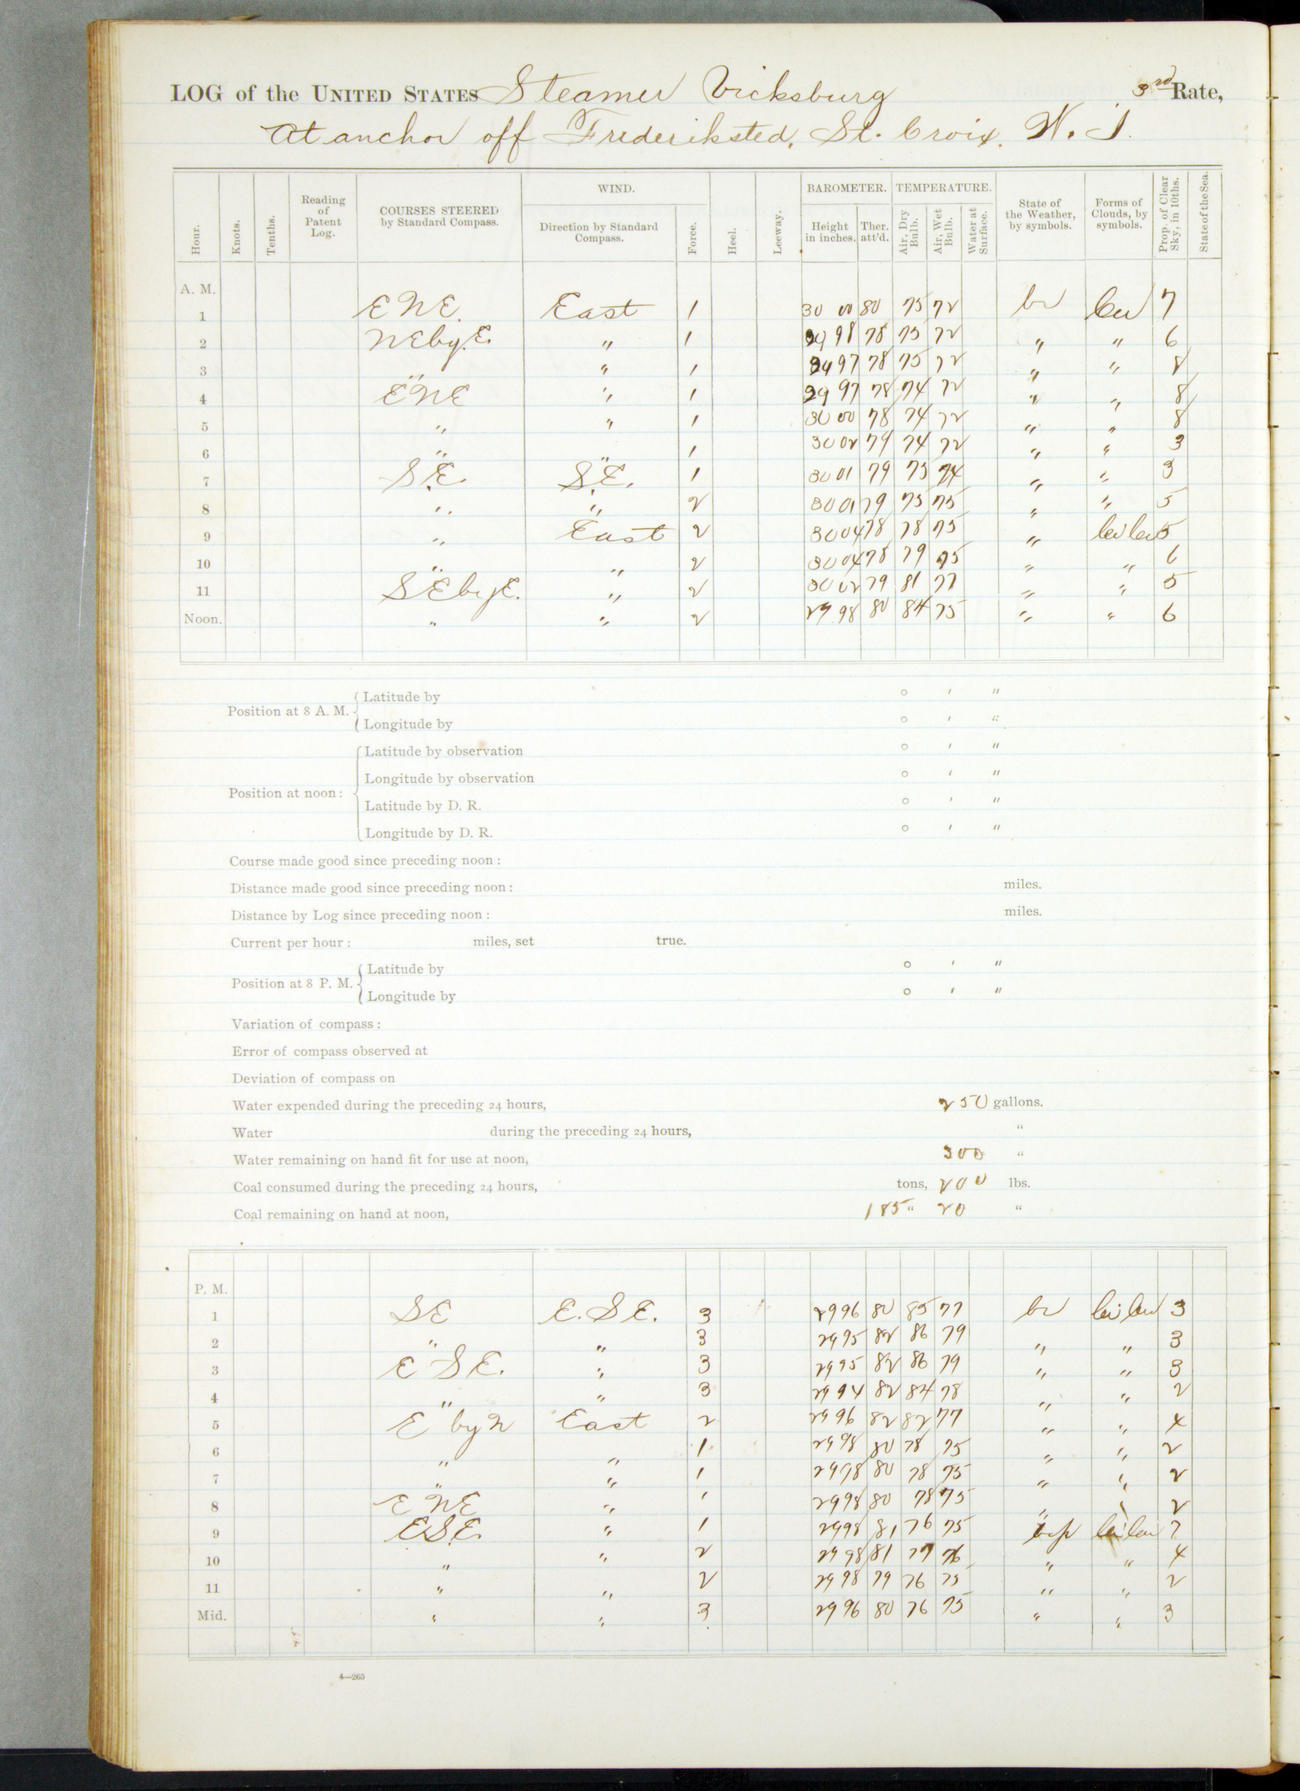 LOG of the UNITED STATES Steamer Vicksburg 3rd Rate,
At anchor off Frederiksted, St. Croix, W. I.
Hour. Knots. Tenths. Reading of Patent Log. COURSES STEERED by Standard Compass. WIND. Direction by Standard Compass. Force. Heel. Leeway. BAROMETER. Height in inches. Ther. att'd. TEMPERATURE. Air, Dry Bulb. Air, Wet Bulb. Water at Surface. State of the Weather, by symbols. Forms of Clouds, by symbols. Prop. of Clear Sky, in 10ths. State of the Sea.
A. M.
1 ENE. East 1 30 00 80 75 72 bc Cu 7
2 NEbyE. " 1 29 98 78 75 72 " " 6
3 " " 1 29 97 78 75 72 " " 8
4 ENE " 1 29 97 78 74 72 " " 8
5 " " 1 30 00 78 74 72 " " 8
6 " " 1 30 02 79 74 72 " " 3
7 S.E. S.E. 1 30 01 79 75 74 " " 3
8 " " 2 30 01 79 75 75 " " 5
9 " East 2 30 04 78 78 75 " cicu 5
10 " " 2 30 04 78 79 75 " " 6
11 SEbyE. " 2 30 02 79 81 77 " " 5
Noon. " " 2 29 98 80 84 75 " " 6
Position at 8 A. M. Latitude by ° ' "
Longitude by ° ' "
Position at noon: Latitude by observation ° ' "
Longitude by observation ° ' "
Latitude by D. R. ° ' "
Longitude by D. R. ° ' "
Course made good since preceding noon:
Distance made good since preceding noon: miles.
Distance by Log since preceding noon: miles.
Current per hour: miles, set true.
Position at 8 P. M. Latitude by ° ' "
Longitude by ° ' "
Variation of compass:
Error of compass observed at
Deviation of compass on
Water expended during the preceding 24 hours, 250 gallons.
Water during the preceding 24 hours, "
Water remaining on hand fit for use at noon, 300 "
Coal consumed during the preceding 24 hours, tons, 200 lbs.
Coal remaining on hand at noon, 185 " 20 "
P. M.
1 SE E.SE. 3 29 96 80 85 77 bc cicu 3
2 " " 3 29 95 82 86 79 " " 3
3 ESE. " 3 29 95 82 86 79 " " 3
4 " " 3 29 94 82 84 78 " " 2
5 E by N East 2 29 96 82 82 77 " " 4
6 " " 1 29 98 80 78 75 " " 2
7 " " 1 29 98 80 78 75 " " 2
8 ENE " 1 29 98 80 78 75 " " 2
9 ESE. " 1 29 98 81 76 75 cicu 7
10 " " 2 29 98 81 77 76 " " 4
11 " " 2 29 98 79 76 75 " " 2
Mid. " " 3 29 96 80 76 75 " " 3
4—265